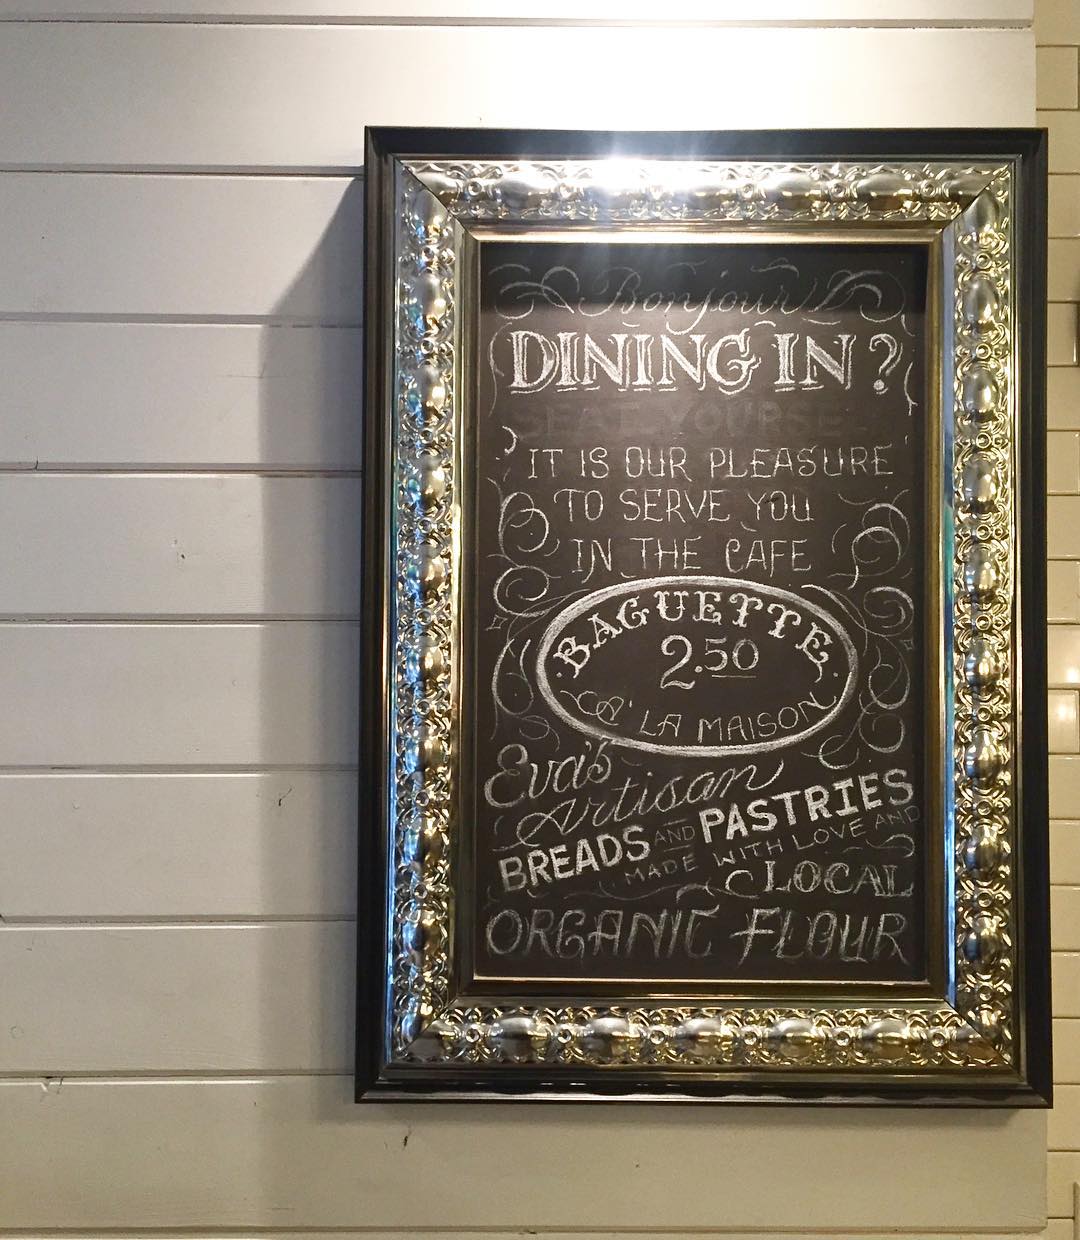 Bonjour
DINING IN?
SEAT YOURSE
IT IS OUR PLEASURE
TO SERVE YOU
IN THE CAFE
BAGUETTE
2.50
A' LA MAISON
Eva's
Artisan
BREADS AND PASTRIES
MADE WITH LOVE AND
LOCAL
ORGANIC FLOUR